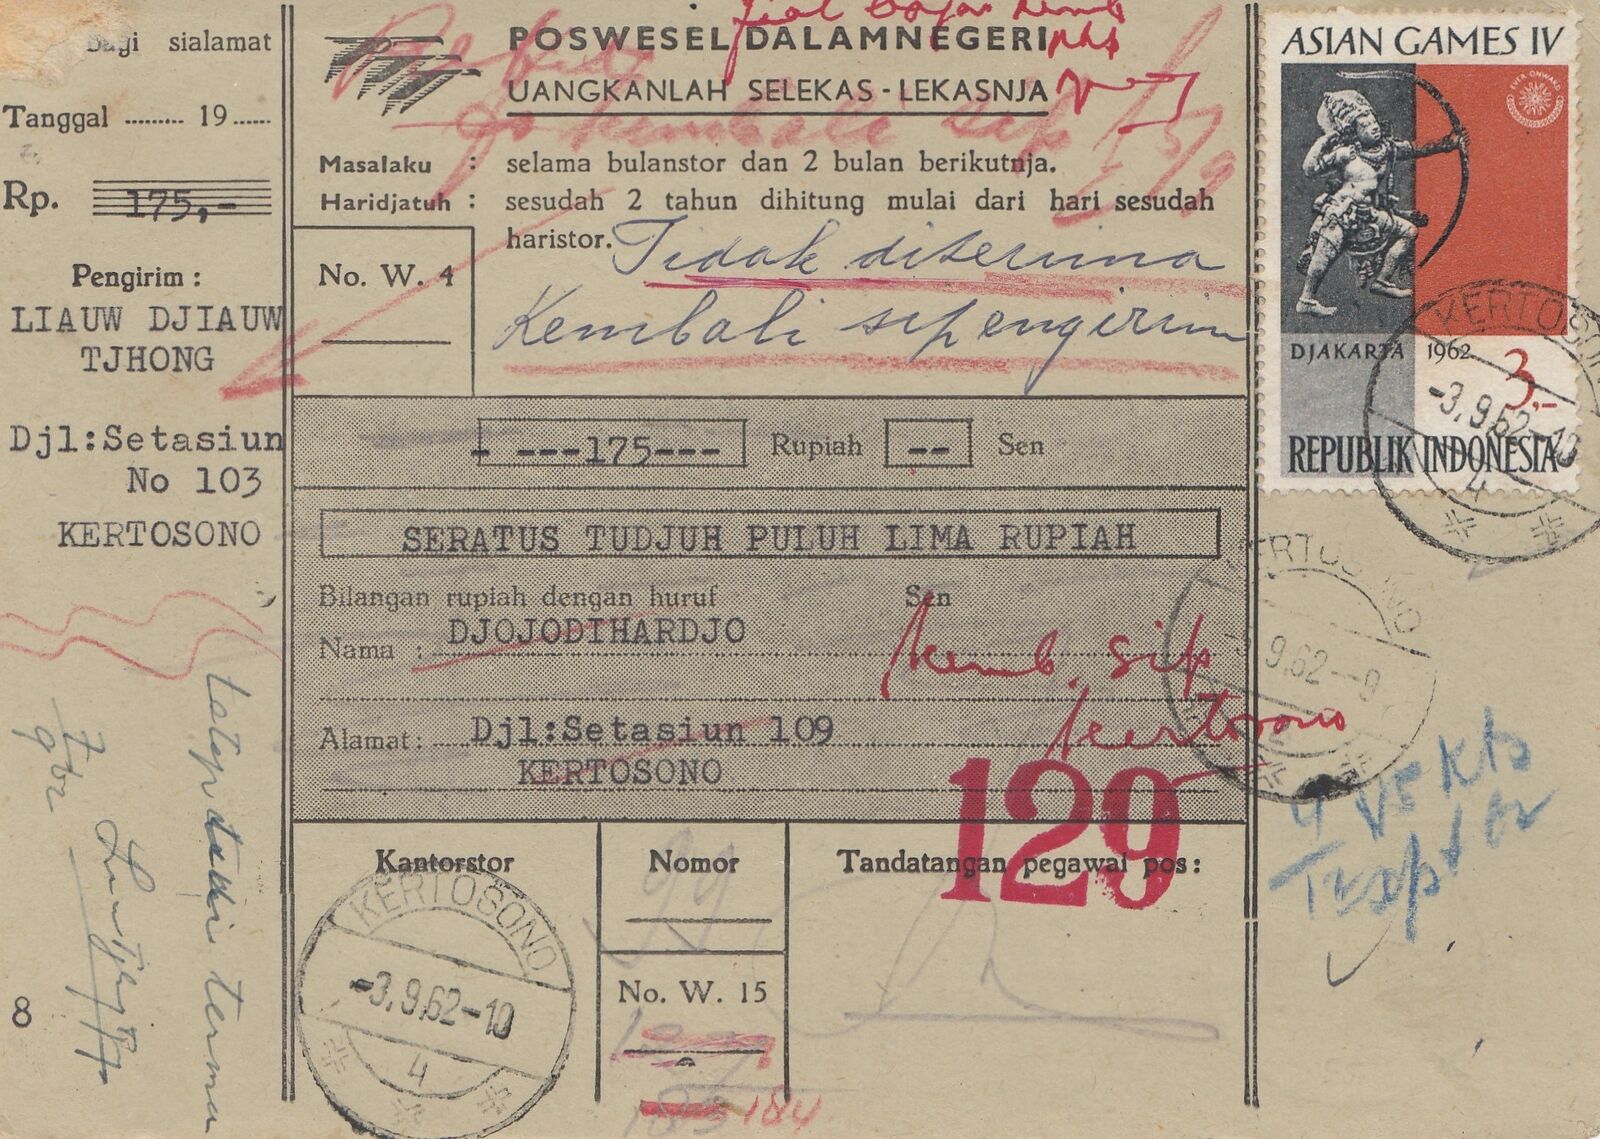 Bagi sialamat
Tanggal ......... 19......
Rp. 175,-
Pengirim :
LIAUW DJIAUW
TJHONG
Djl:Setasiun
No 103
KERTOSONO
8
POSWESEL DALAMNEGERI
UANGKANLAH SELEKAS - LEKASNJA
Masalaku : selama bulanstor dan 2 bulan berikutnja.
Haridjatuh : sesudah 2 tahun dihitung mulai dari hari sesudah
haristor.
No. W. 4
Tidak diterima
Kembali sipengirim
---175--- Rupiah -- Sen
SERATUS TUDJUH PULUH LIMA RUPIAH
Bilangan rupiah dengan huruf Sen
Nama : DJOJODIHARDJO
kemb. sip
kertosono
Alamat: Djl:Setasiun 109
KERTOSONO
129
Kantorstor
KERTOSONO
-3.9.62-10
4
Nomor
99
No. W. 15
184
Tandatangan pegawai pos:
ASIAN GAMES IV
EVER ONWARD
DJAKARTA 1962
3,-
REPUBLIK INDONESIA
KERTOSONO
-3.9.62-10
4
KERTOSONO
9.62--9